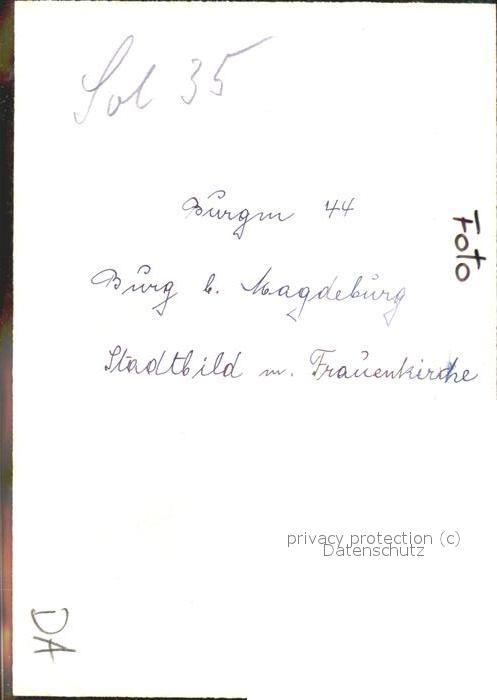 Sol 35
Burgm 44
Foto
Burg b. Magdeburg
Stadtbild m. Frauenkirche
privacy protection (c)
Datenschutz
DA